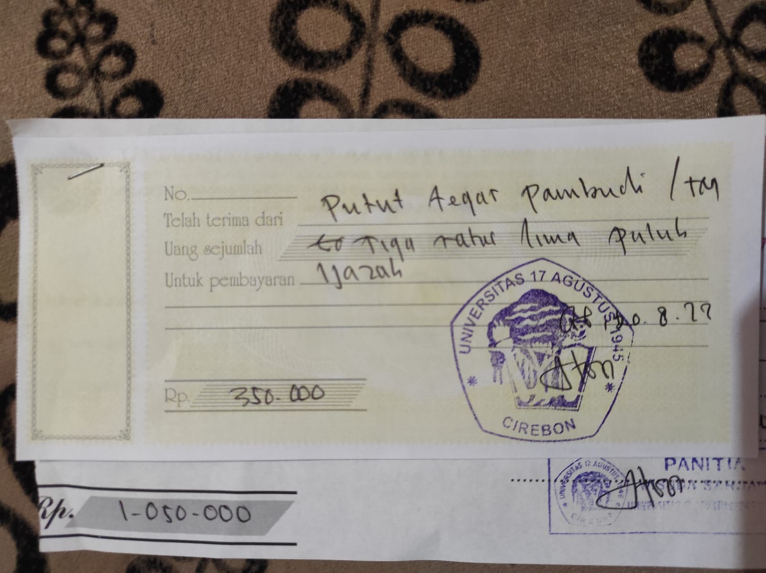 No.
Telah terima dari Putut Aegar Pambudi /
Uang sejumlah Tiga ratus lima puluh
Untuk pembayaran Ijazah
UNIVERSITAS 17 AGUSTUS 1945
CIREBON
20.8.22
Rp. 350.000
PANITIA
Rp. 1-050-000